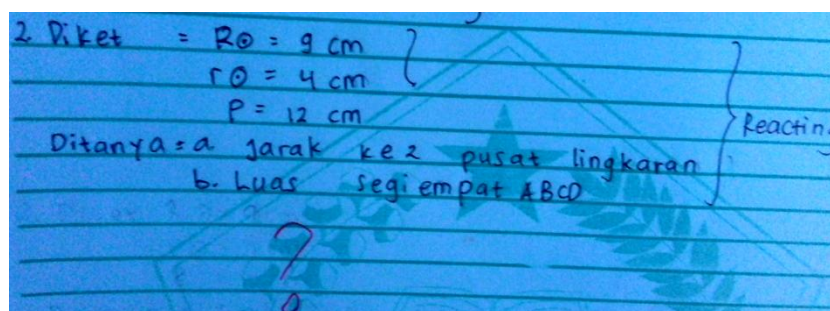 2. Diket = R⊙ = 9 cm
r⊙ = 4 cm
P = 12 cm
Reactin
Ditanya = a Jarak ke 2 pusat lingkaran
b. Luas segi empat ABCD
?